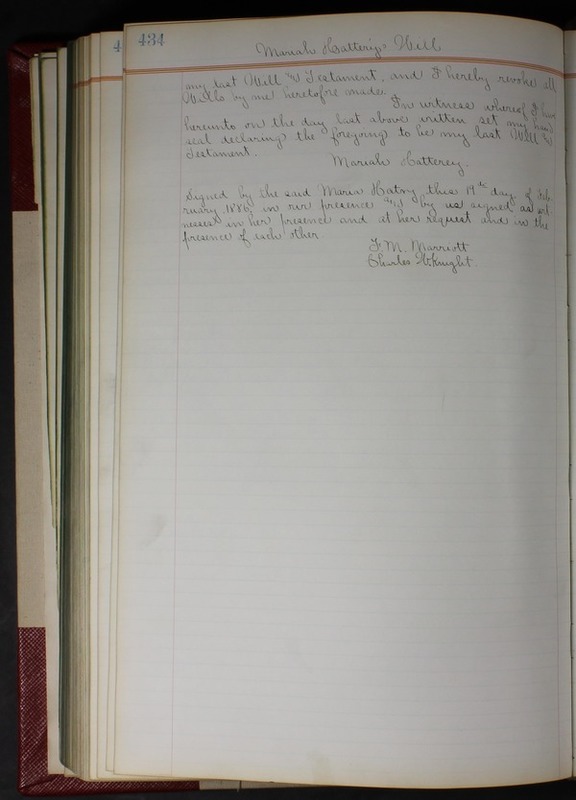 434
Mariah Hattery's Will
my last Will and Testament, and I hereby revoke all
Wills by me heretofore made.
In witness whereof I have
hereunto on the day last above written set my hand
seal declaring the foregoing to be my last Will and
Testament.
Mariah Hatterey.
Signed by the said Maria Hatry this 19th day of Feb-
ruary 1886, in our presence and by us signed as wit-
nesses in her presence and at her request and in the
presence of each other
F. M. Marriott
Charles W. Knight
4